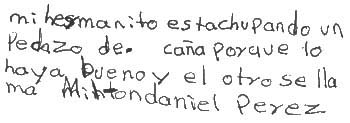 mi hermanito estachupando un
Pedazo de. caña porque lo
haya bueno y el otro se lla
ma Mihtondaniel Perez